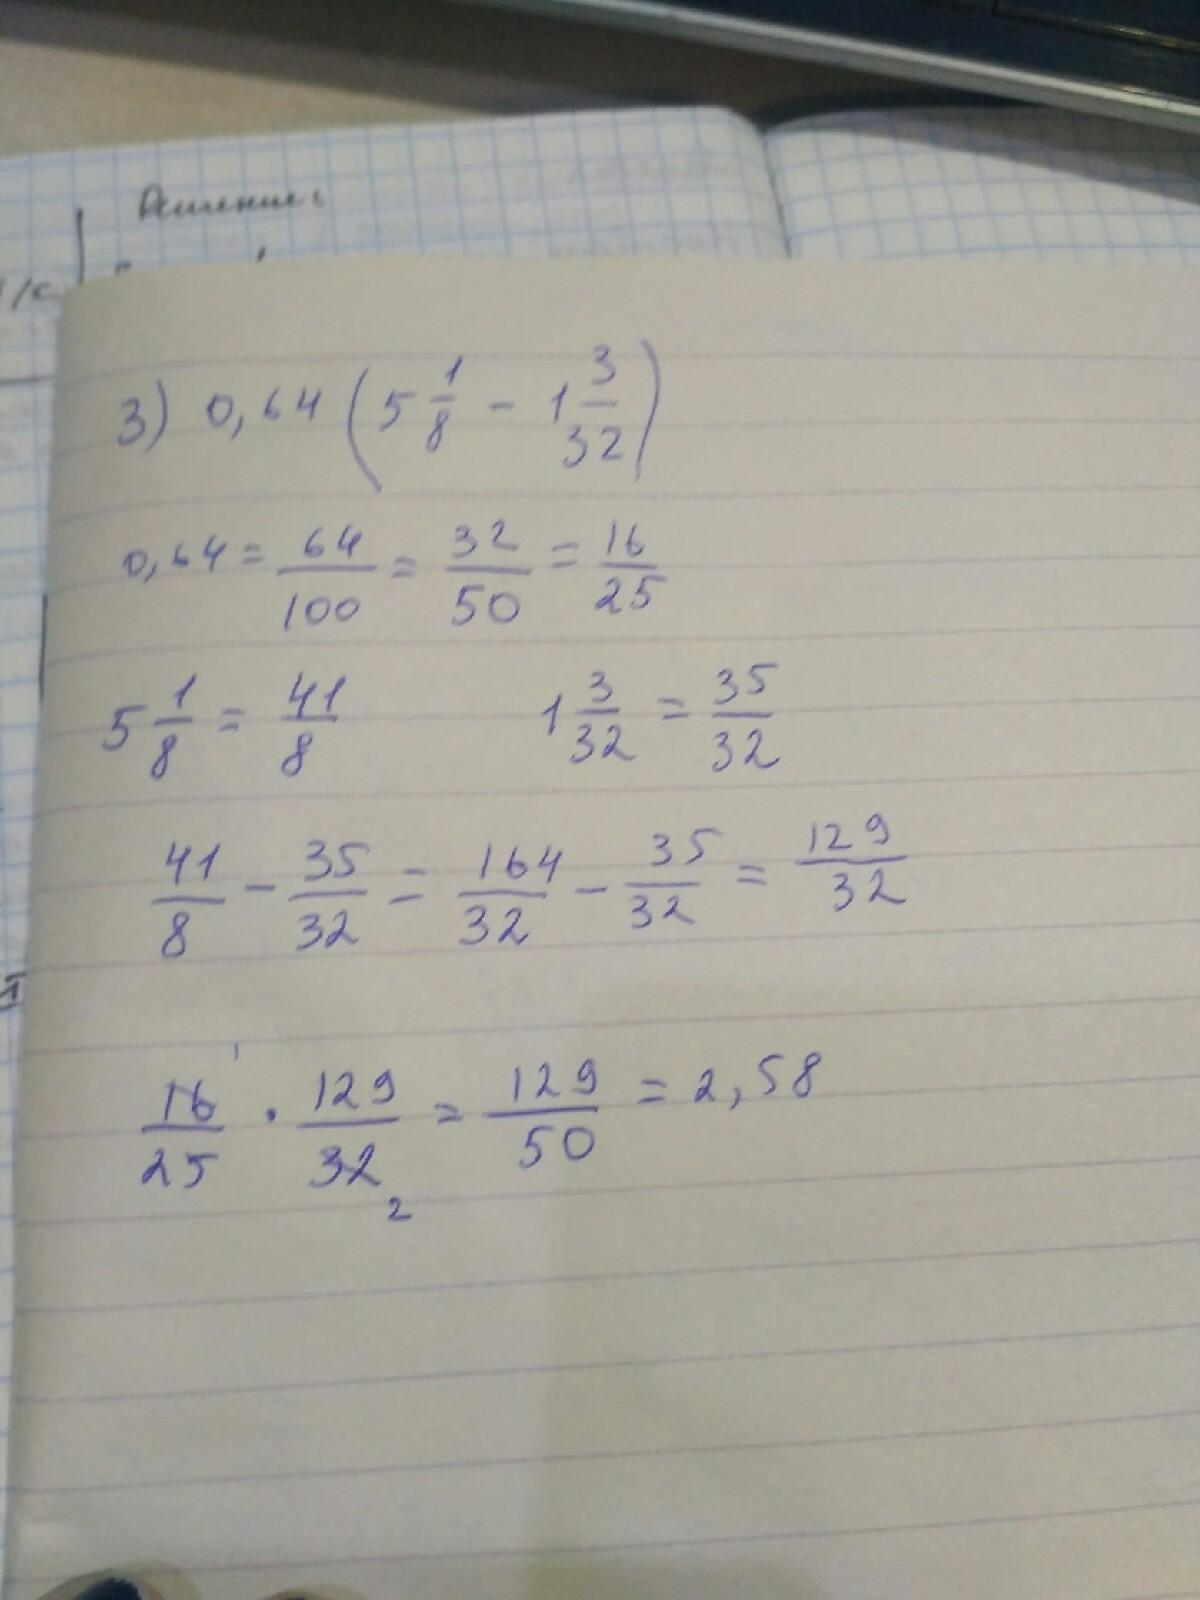 Решение:
/с
3) 0,64 (5 1/8 - 1 3/32)
0,64 = 64/100 = 32/50 = 16/25
5 1/8 = 41/8 1 3/32 = 35/32
41/8 - 35/32 = 164/32 - 35/32 = 129/32
16/25 1 · 129/32 2 = 129/50 = 2,58